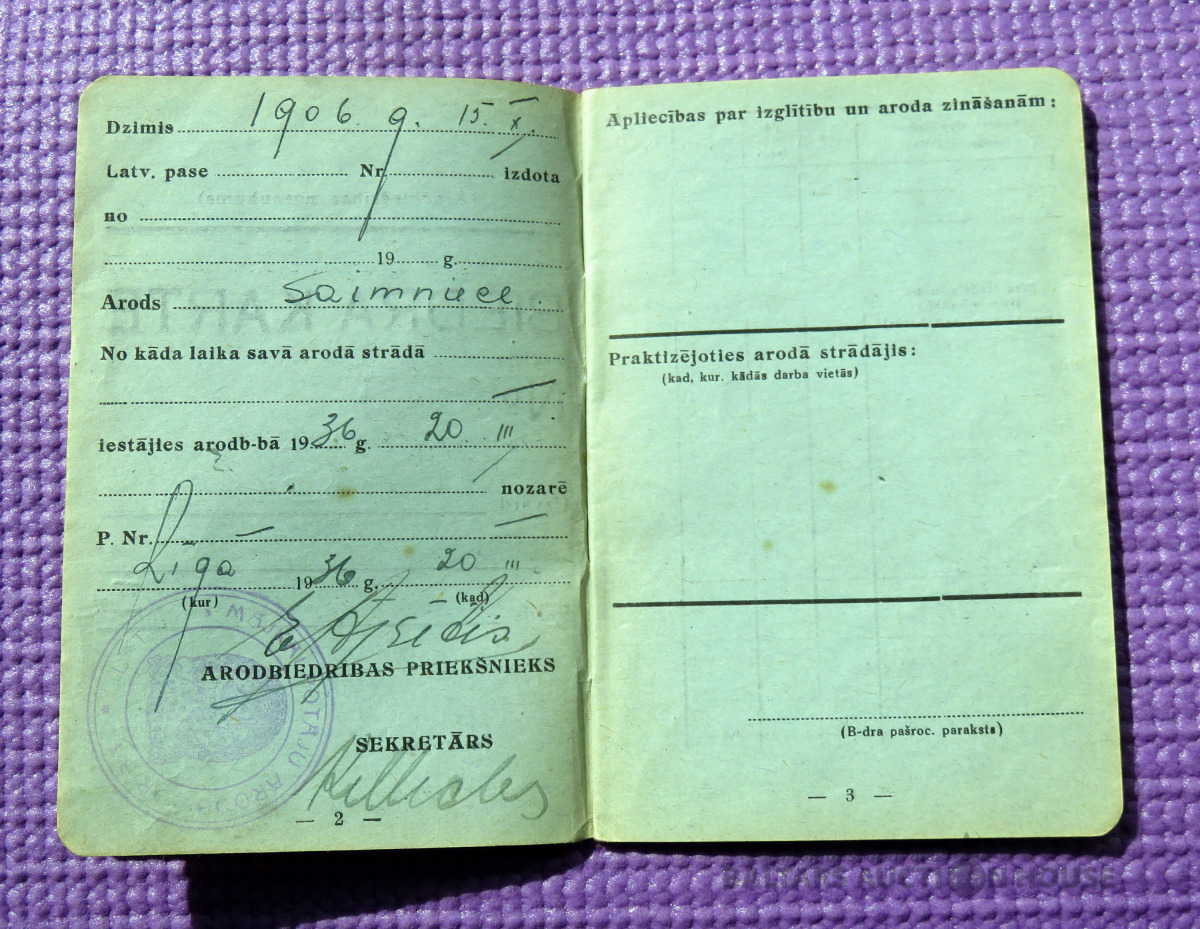 Dzimis 1906. g. 15. X.
Latv. pase Nr. izdota
no
19 g.
Arods Saimniece
No kāda laika savā arodā strādā
iestājies arodb-bā 1936 g. 20 III
nozarē
P. Nr. —
Rīgā 1936 g. 20 III
(kur) (kad)
ARODBIEDRĪBAS PRIEKŠNIEKS
SEKRETĀRS
— 2 —
Apliecības par izglītību un aroda zināšanām:
Praktizējoties arodā strādājis:
(kad, kur, kādās darba vietās)
(B-dra pašroc. paraksts)
— 3 —
BALTARS AUCTION HOUSE